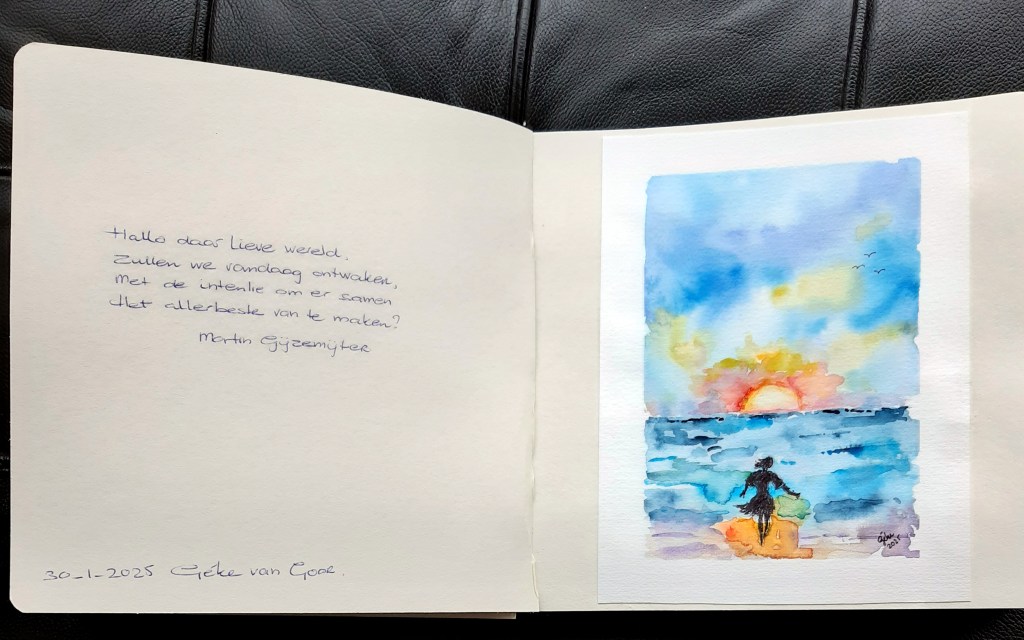 Hallo daar lieve wereld.
Zullen we vandaag ontwaken,
Met de intentie om er samen
Het allerbeste van te maken?
Martin Gijzemijter
30-1-2025 Géke van Goor.
2025